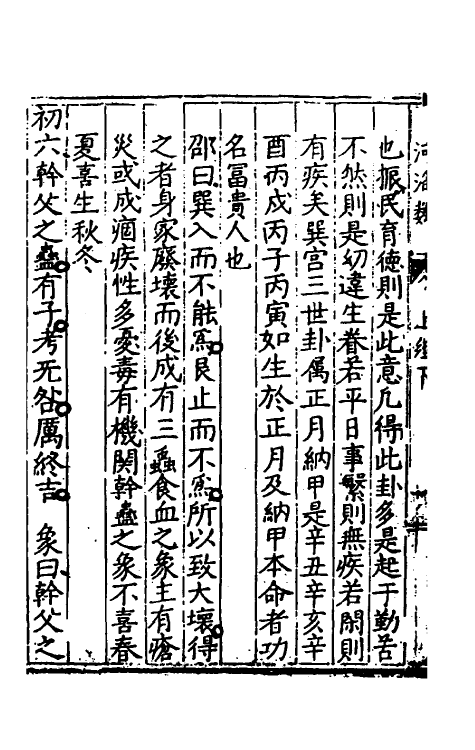 也振民育德則是此意凡得此卦多是起于勤苦
不然則是幼違生眷若平日事繁則無疾若閑則
有疾矣巽宫三世卦属正月納甲是辛丑辛亥辛
酉丙戌丙子丙寅如生於正月及納甲本命者功
名富貴人也
邵曰巽入而不能爲艮止而不爲所以致大壞得
之者身家廢壞而後成有三蟲食血之象主有瘡
災或成痼疾性多憂毒有機関幹蠱之象不喜春
夏喜生秋冬
初六幹父之蠱有子考无咎厲終吉 象曰幹父之
上經下